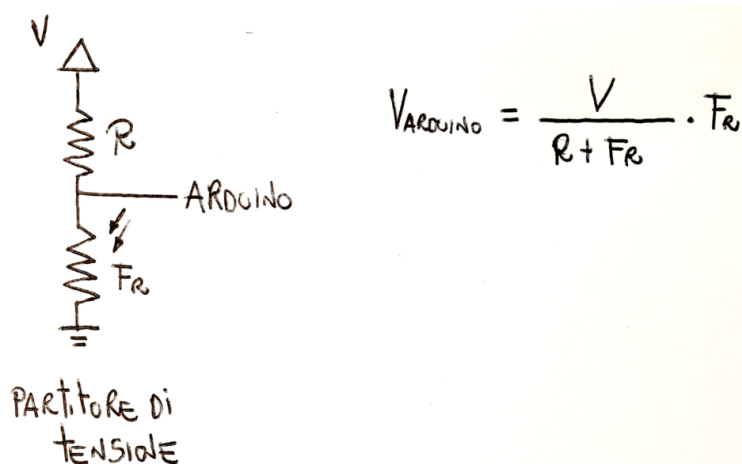 V
R
ARDUINO
FR
PARTITORE DI
TENSIONE
VARDUINO = V / (R + FR) · FR